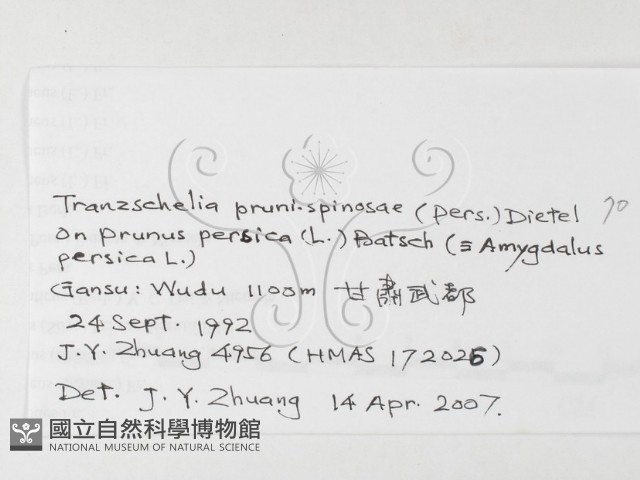 Tranzschelia pruni-spinosae (Pers.) Dietel 70
on prunus persica (L.) Batsch (≡ Amygdalus
persica L.)
Gansu: Wudu 1100m 甘肅武都
24 Sept. 1992
J.Y. Zhuang 4956 (HMAS 172025)
Det. J. Y. Zhuang 14 Apr. 2007.
國立自然科學博物館
NATIONAL MUSEUM OF NATURAL SCIENCE